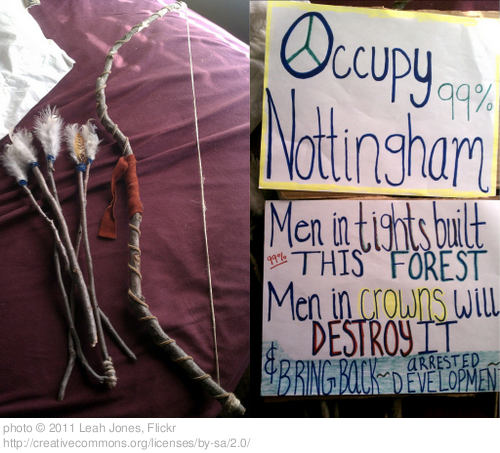 Occupy
99%
Nottingham
Men in tights built
99% THIS FOREST
Men in crowns will
DESTROY IT
& BRING BACK~ ARRESTED
DEVELOPMENT
photo © 2011 Leah Jones, Flickr
http://creativecommons.org/licenses/by-sa/2.0/